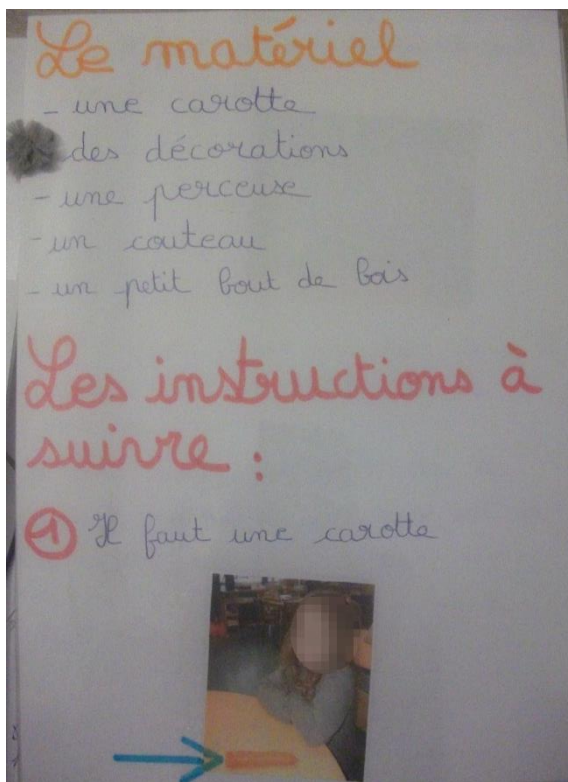 Le matériel
- une carotte
des décorations
- une perceuse
- un couteau
- un petit bout de bois
Les instructions à
suivre :
1 Il faut une carotte